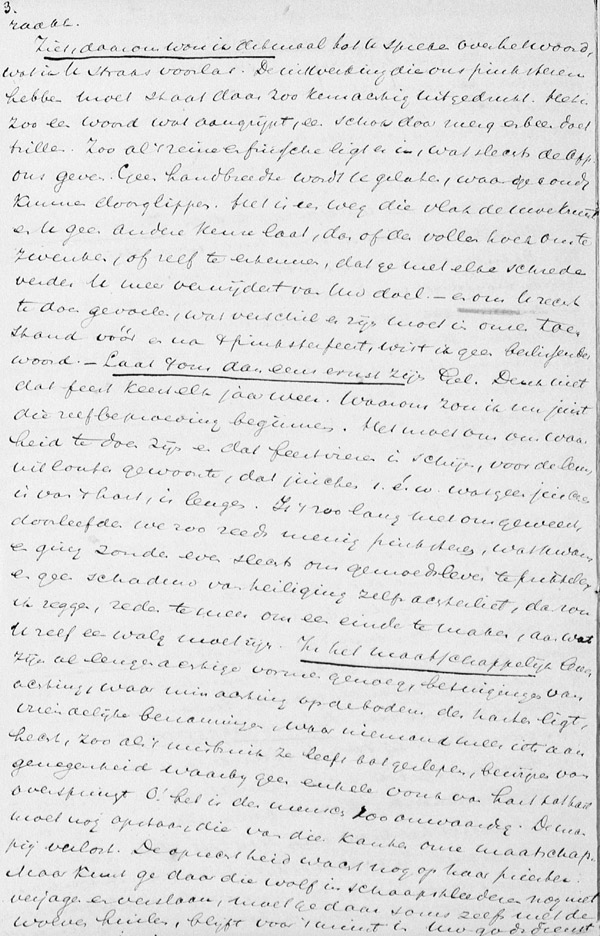 3.
raakt.
Ziet, daarom wou ik ditmaal tot U spreken over het woord,
wat ik U straks voorlas. De uitwerking die ons pinksteren
hebben moet staat daar zoo kernachtig uitgedrukt. Het is
zoo een woord wat aangrijpt, een schok door merg en been doet
trillen. Zoo al 't reine en frissche ligt er in, wat slechts de
ons geven. Geen handbreedte wordt U gelaten, waar ge
kunnen doorglippen. Het is een weg die vlak de
en U geen andere keus laat, dan of den vollen hoek om te
zwenken, of zelf te erkennen, dat ge met elke schrede
verder U meer verwijdert van Uw doel. – en om U recht
te doen gevoelen, wat verschil er zijn moet in onzen toe
stand vóór en na 't pinksterfeest, wist ik geen
woord. – Laat 't ons dan eens ernst zijn Gel. Denk niet
dat feest keert elk jaar weer. Waarom zou ik nu juist
die zelfbeproeving beginnen. Het moet ons om waar
heid te doen zijn en dat feestvieren in schijn, voor de leus,
uit louter gewoonte, dat juichen s. é. w. wat geen juichen
is van 't hart, is leugen. Is 't zoo lang met ons geweest,
doorleefden we zoo reeds menig pinksteren, wat kwam
en ging zonder even slechts ons gemoedsleven te
en geen schaduw van heiliging zelf achterliet, dan zou
ik zeggen, reden te meer om een einde te maken, aan wat
U zelf een walg moet zijn. In het maatschappelijk leven
zijn al leugenachtige vormen genoeg, betuigingen van
achting, waar minachting op den bodem des harten ligt,
vriendelijke benamingen, waar niemand meer iets aan
hecht, zoo al 't misbruik ze heeft afgeslepen, bewijzen van
genegenheid waarby geen enkele vonk van hart tot hart
overspringt. O! het is den mensch zoo onwaardig. De man
moet nog opstaan, die van die kanker onze maatschap-
pij verlost. De oprechtheid wacht nog op haar priester.
Maar kunt ge daar die wolf in schaapskleederen nog niet
verjagen en verslaan, moet ge daar soms zelfs met de
wolven huilen, blijft voor 't minst in Uw godsdienst